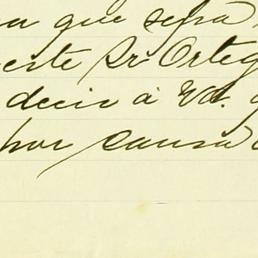 que sepa
este Sr. Orteg
decir á Vd.
por causa